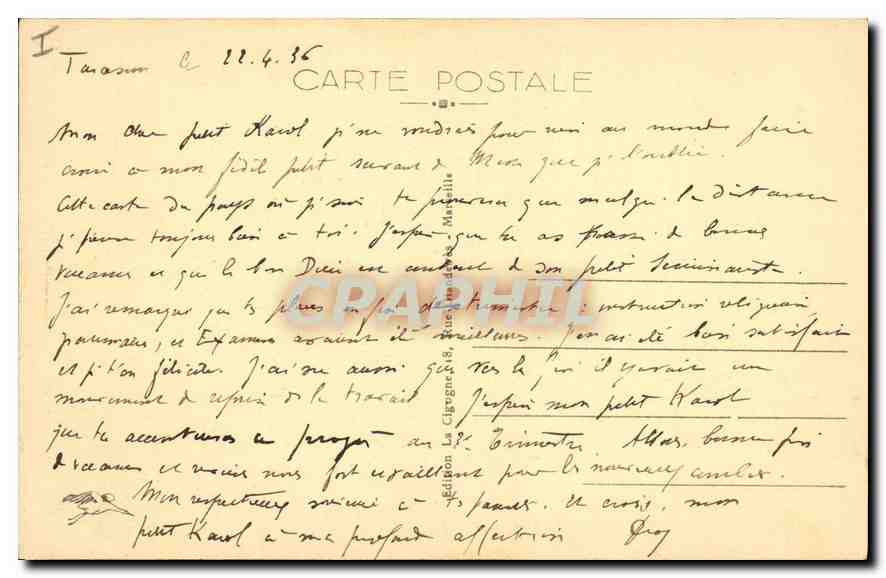 I
Tarascon le 22.4.36
CARTE POSTALE
Mon cher petit Karol je ne voudrais pour rien au monde faire
croire à mon fidèle petit servant de Messe que je l'oublie.
Cette carte du pays où je suis te prouvera que malgré la distance
je pense toujours bien à toi. J'espère que tu as passé de bonnes
vacances et que le bon Dieu est content de son petit Séminariste.
J'ai remarqué que tes places en fin de trimestre : instruction religieuse
, et Examens avaient été meilleures. J'en ai été bien satisfait
et je t'en félicite. J'ai su aussi que vers la fin il y avait un
mouvement de reprise de le travail J'espère mon petit Karol
que tu accentueras ce progrès au 3e Trimestre. Allons, bonne fin
de vacances et reviens nous fort et vaillant pour les nouveaux combats.
Mon respectueux souvenir à tes parents. et crois, mon
petit Karol à ma profonde affection
Edition La Cigogne, 48, Rue Marseille
CPAPHIL